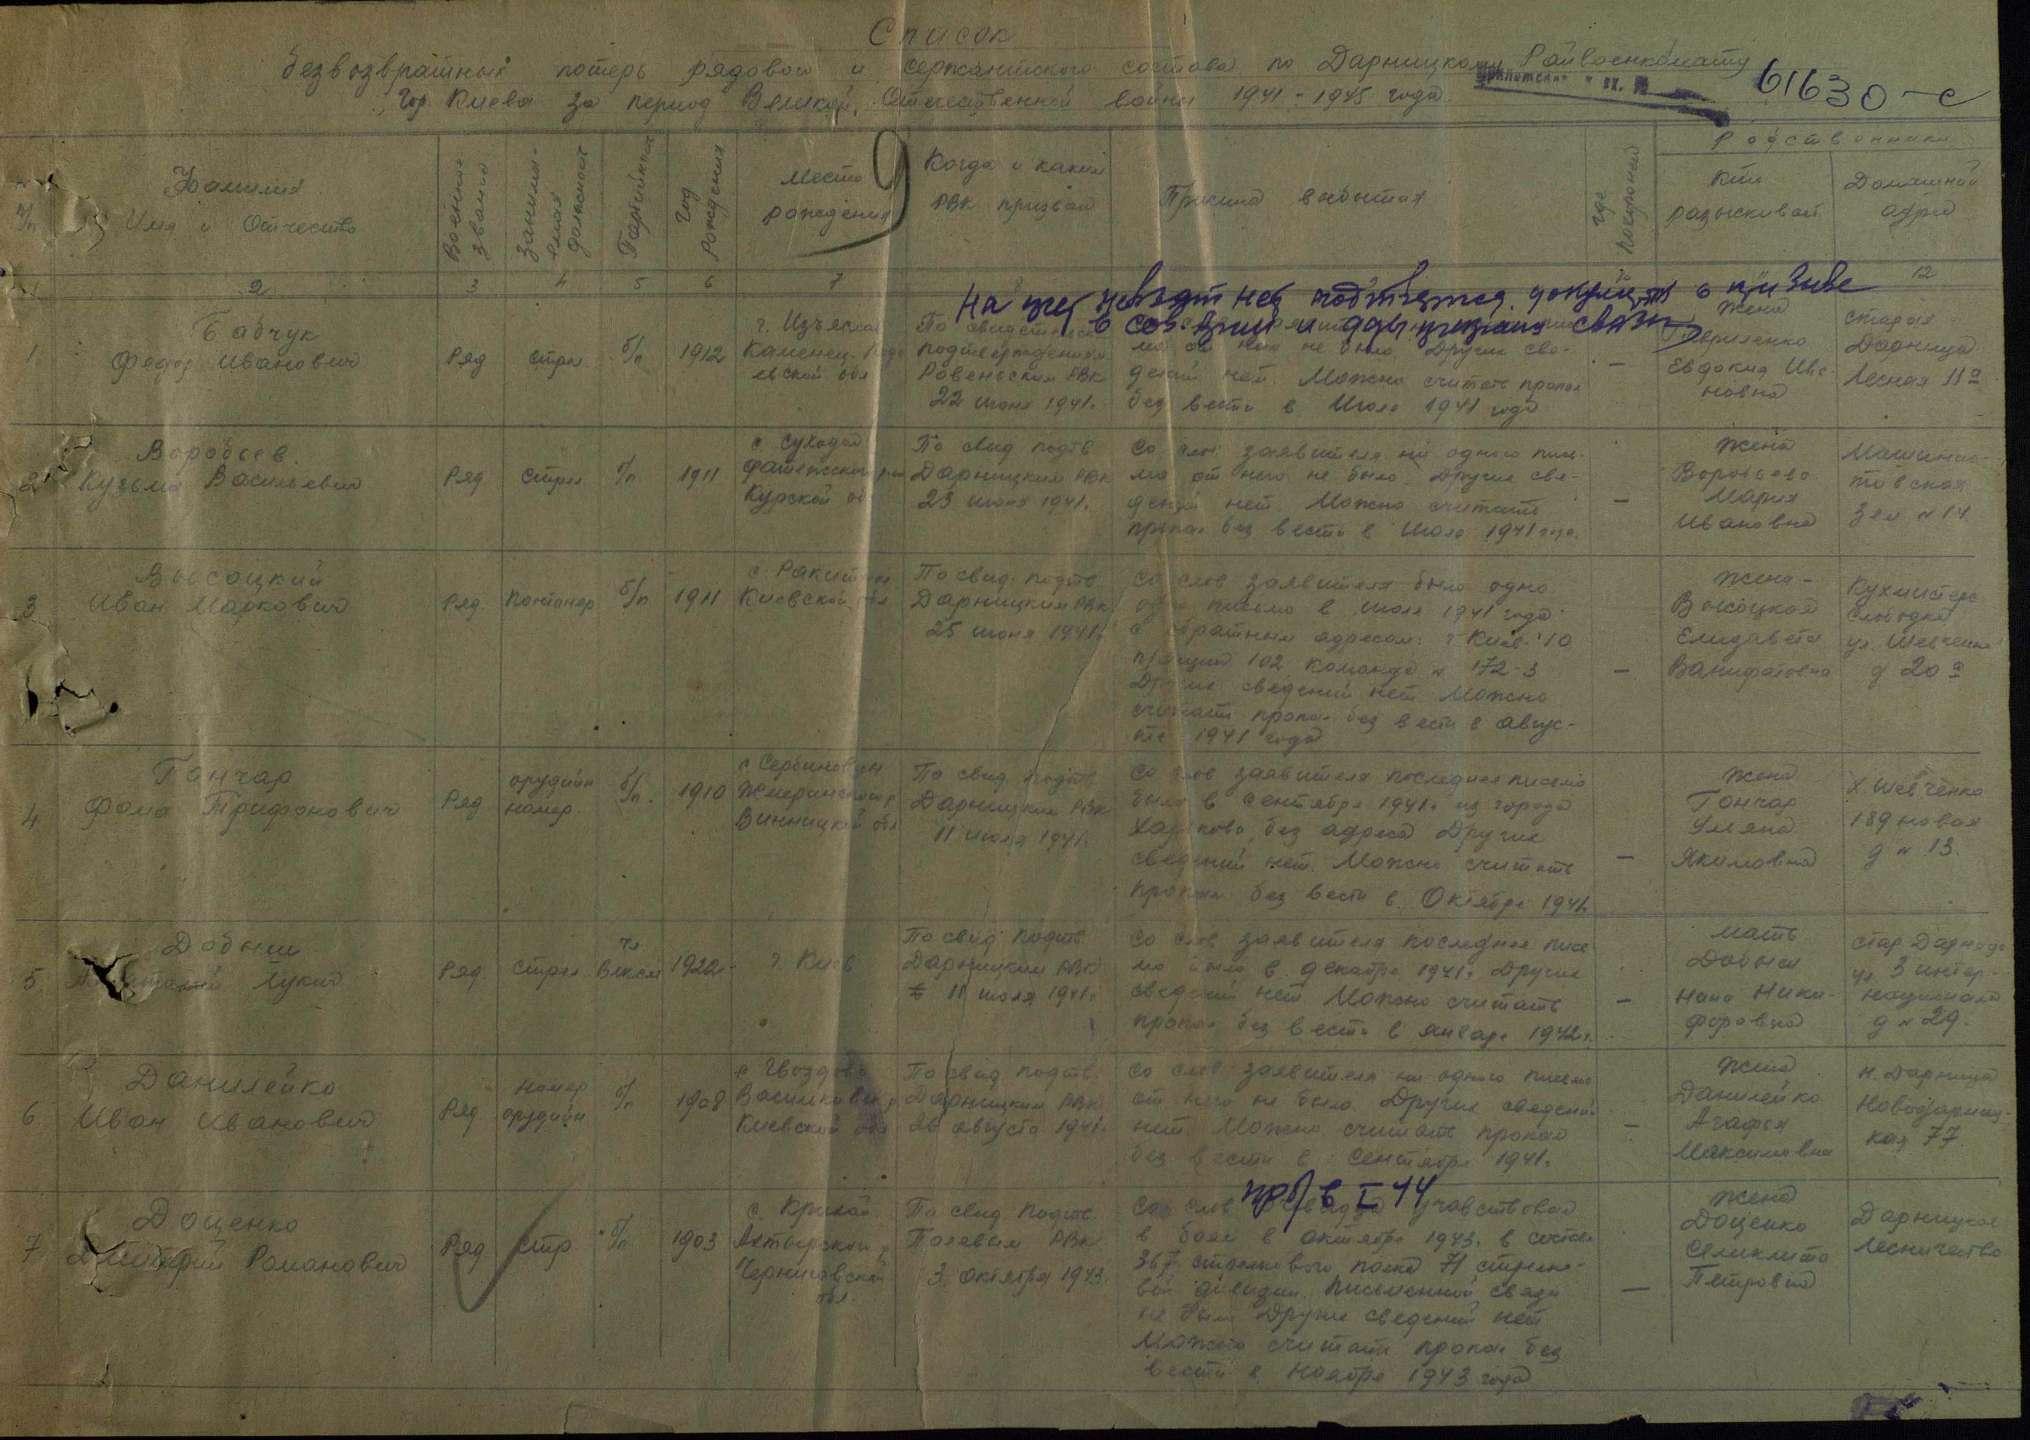 Список
безвозвратных потерь рядового и сержантского состава по Дарницкому Райвоенкомату
гор. Киева за период Великой Отечественной войны 1941-1945 года
61630-с
№ п/п
Фамилия
Имя и Отчество
Военное звание
Занимаемая должность
Партийность
Год рождения
Место рождения
Когда и каким РВК призван
Причина выбытия
Где похоронен
Родственники
Кто разыскивает
Домашний адрес
2 3 4 5 6 7 12
На учет
1
Бабчук
Федор Иванович
Ряд
стрел
б/п
1912
г. Изъяслав
Каменец-Подо
евской обл
По свид
подтвержденных
Ровеньским РВК
22 июня 1941г.
ма от него не было. Другие све-
дений нет. Можно считать пропал
без вести в Июле 1941 года
—
жена
Евдокия Ива-
новна
старая
Дарница
Лесная 11а
2
Воробьев
Кузьма Васильевич
Ряд
стрел
б/п
1911
с Суходол
Фатежского р-н
Курской об
По свид подтв
Дарницким РВК
23 июня 1941г.
Со слов заявителя ни одного пись-
ма от него не было. Другие све-
дений нет Можно считать
пропал без вести в Июле 1941 года.
—
жена
Воробьева
Мария
Ивановна
3
Высоцкий
Иван Маркович
Ряд
понтонер
б/п
1911
с. Ракитно
Киевской обл
По свид. подтв
Дарницким РВК
25 июня 1941г.
Со слов заявителя было одно
письмо в июле 1941 года
с обратным адресом: г Киев-10
102 команда № 172-3
Другие сведений нет Можно
считать пропал без вести в Авгус-
те 1941 года
—
жена-
Высоцкая
Елизавета
Ванифатовна
Кухмистерс
слободка
ул. Шевченко
д 20а
4
Гончар
Фома Трифонович
Ряд
орудийн
номер
б/п.
1910
с Сербиновцы
Жмеринского р
Винницкой обл
По свид подтв
Дарницким РВК
11 июля 1941г.
Со слов заявителя последнее письмо
было в сентябре 1941г из города
Харькова, без адреса Другие
сведений нет. Можно считать
пропал без вести в Октябре 1941г.
—
жена
Гончар
Ульяна
Якимовна
Х. Шевченко
189 новая
д № 13.
5
Лукич
Ряд.
стрел
чл
влксм
1922г
г. Киев
По свид подтв
Дарницким РВК
11 июля 1941г.
Со слов заявителя последнее пись
мо было в декабре 1941г Другие
сведений нет Можно считать
пропал без вести в Январе 1942г.
—
мать
Ники-
форовна
стар Дарница
ул 3 интер-
национала
д № 29.
6
Данилейко
Иван Иванович
Ряд
номер
орудийн
б/п
1908
с Гвоздово
Васильков р
Киевской обл
По свид подтв.
Дарницким РВК
26 августа 1941г.
Со слов заявителя ни одного письма
от него не было Другие сведений
нет. Можно считать пропал
без вести в Сентябре 1941г.
—
жена
Данилейко
Агафья
Максимовна
н. Дарница
Новодарниц-
кая 77.
7
Доценко
Дмитрий Романович
Ряд
стр
б/п
1903
Черниговской
обл.
По свид подтв
РВК
3 октября 1943
пр/б в I 44
Со слов участвовал
в боях в октябре 1943г. в составе
367 стрелкового полка 71 стрелко-
вой дивизии. Письменной связи
не было Другие сведений нет
Можно считать пропал без
вести в ноябре 1943 года
—
жена
Доценко
Петровна
Дарницкое
лесничество